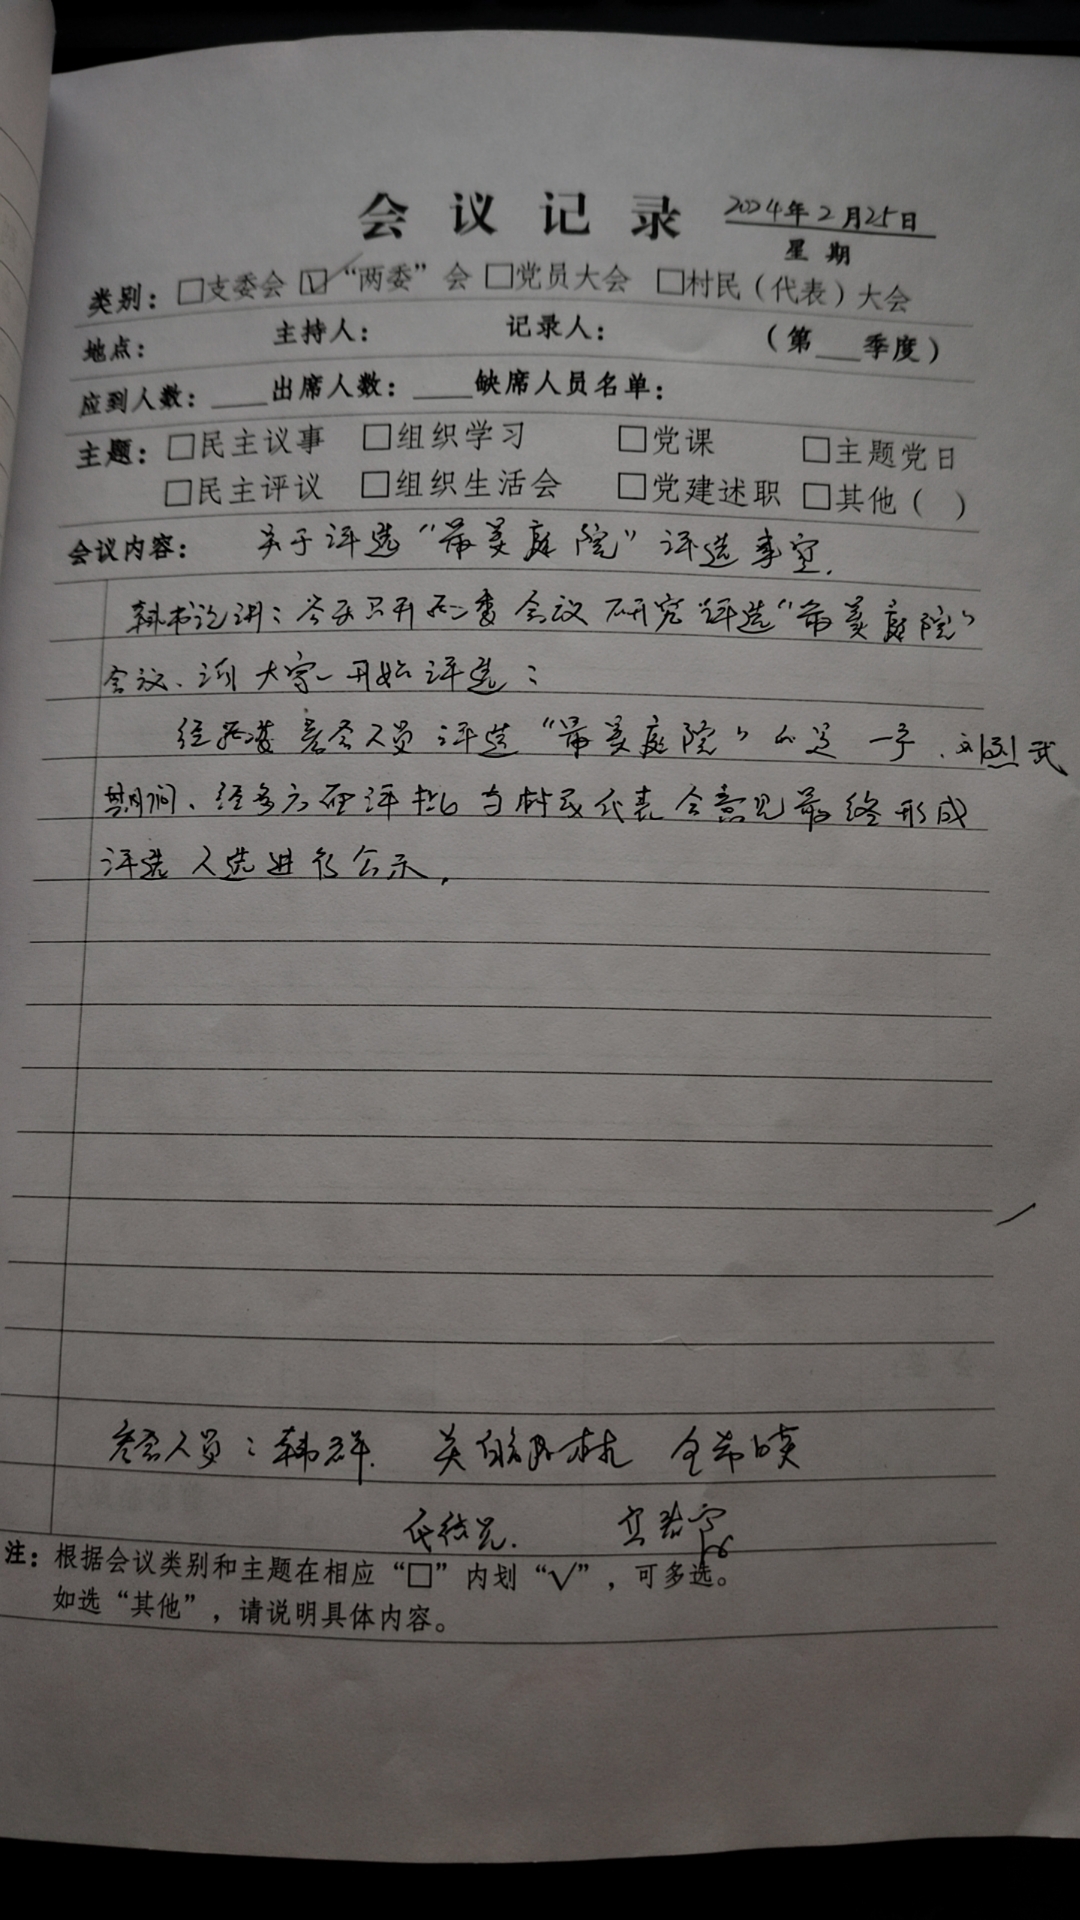 会议记录 2024年2月25日
星期
类别：□支委会 ☑“两委”会 □党员大会 □村民（代表）大会
地点： 主持人： 记录人： （第___季度）
应到人数：___出席人数：___缺席人员名单：
主题：□民主议事 □组织学习 □党课 □主题党日
□民主评议 □组织生活会 □党建述职 □其他（ ）
会议内容： 关于评选“最美庭院”评选事宜.
韩书记讲：今天召开 委会议研究评选“最美庭院”
会议、 大家 开始评选：
经 参会人员评选“最美庭院” 刘烈武
期间、经多方面评 与村民代表会意见最终形成
评选人选进行公示.
参会人员：韩群. 关 林 全
注：根据会议类别和主题在相应“□”内划“√”，可多选。
如选“其他”，请说明具体内容。